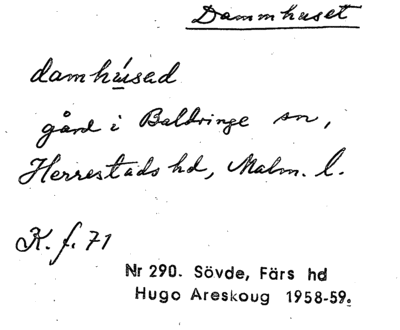 Dammhuset
damhúsad
gård i Baldringe sn,
Herrestads hd, Malm. l.
K. f. 71
Nr 290. Sövde, Färs hd
Hugo Areskoug 1958-59.